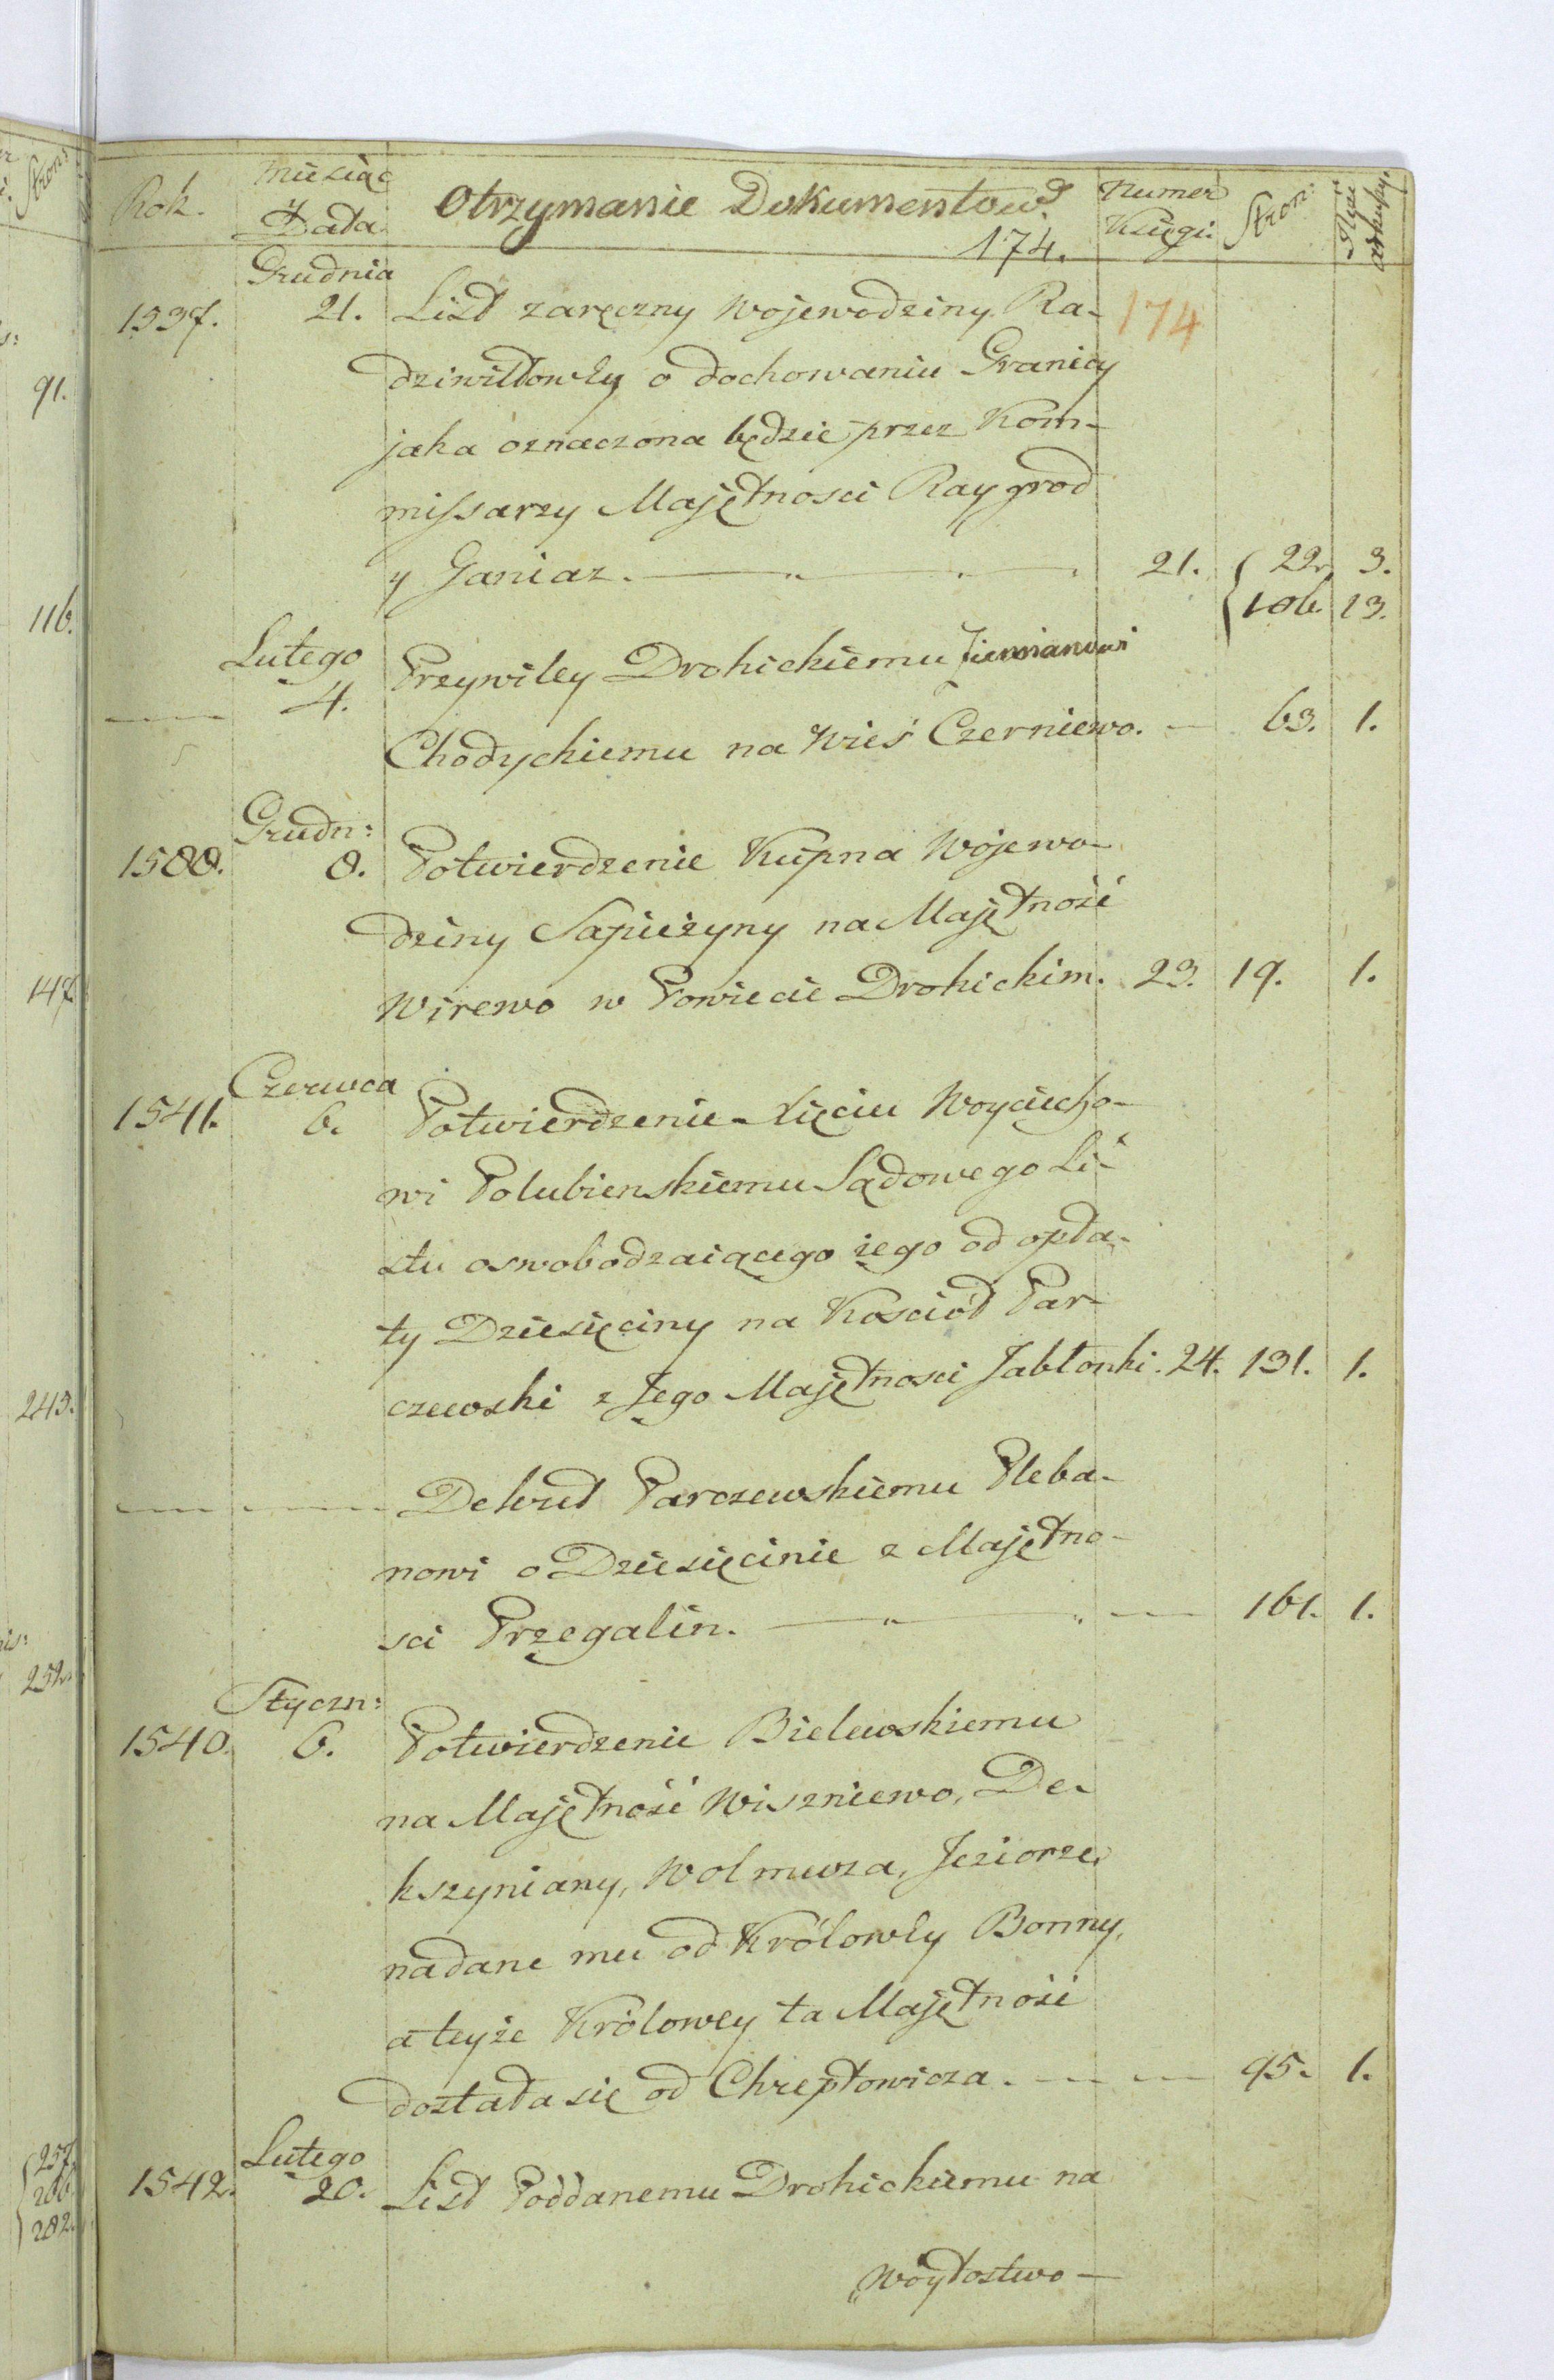 Rok.
Miesiąc
Data.
Otrzymanie Dokumentow.
174.
Numer
Księgi.
Stron:
Ilość
arkuszy.
1537.
Grudnia
21.
List zaręczny Wojewodziny Ra-
174
dziwiłłowły o dochowaniu Granicy
jaka oznaczona będzie przez Kom-
missarzy Majętnosci Raygrod
y Ganiaz. 21. 22. 3.
106. 13.
Lutego
4.
Przywiley Drohickiemu Ziemianowi
Chodyckiemu na Wieś Czerniewo. 63. 1.
Grudn:
1588. 8. Potwierdzenie Kupna Wojewo-
dziny Sapieżyny na Majętność
Wirewo w Powiecie Drohickim. 23. 19. 1.
Czerwca
1541. 6. Potwierdzenie Xięciu Woyciecho-
wi Polubienskiemu Sądowego Li-
stu oswobodzaiącego iego od opła-
ty Dziesięciny na Kosciół Par-
czewski z Jego Majętnosci Jabłonki. 24. 131. 1.
Dekret Parczewskiemu Pleba-
nowi o Dziesięcinie z Majętno-
sci Przegalin. 161. 1.
Styczn:
1540. 6. Potwierdzenie Bielewskiemu
na Majętność Wiszniewo, De-
kszyniany, Wolmusza, Jeziorze,
nadane mu od Królowły Bonny,
a teyże Królowey ta Majętność
dostała się od Chreptowicza. 95. 1.
Lutego
1542. 20. List Poddanemu Drohickiemu na
Wóytostwo
91.
116.
147.
243.
252.
257.
266.
282.